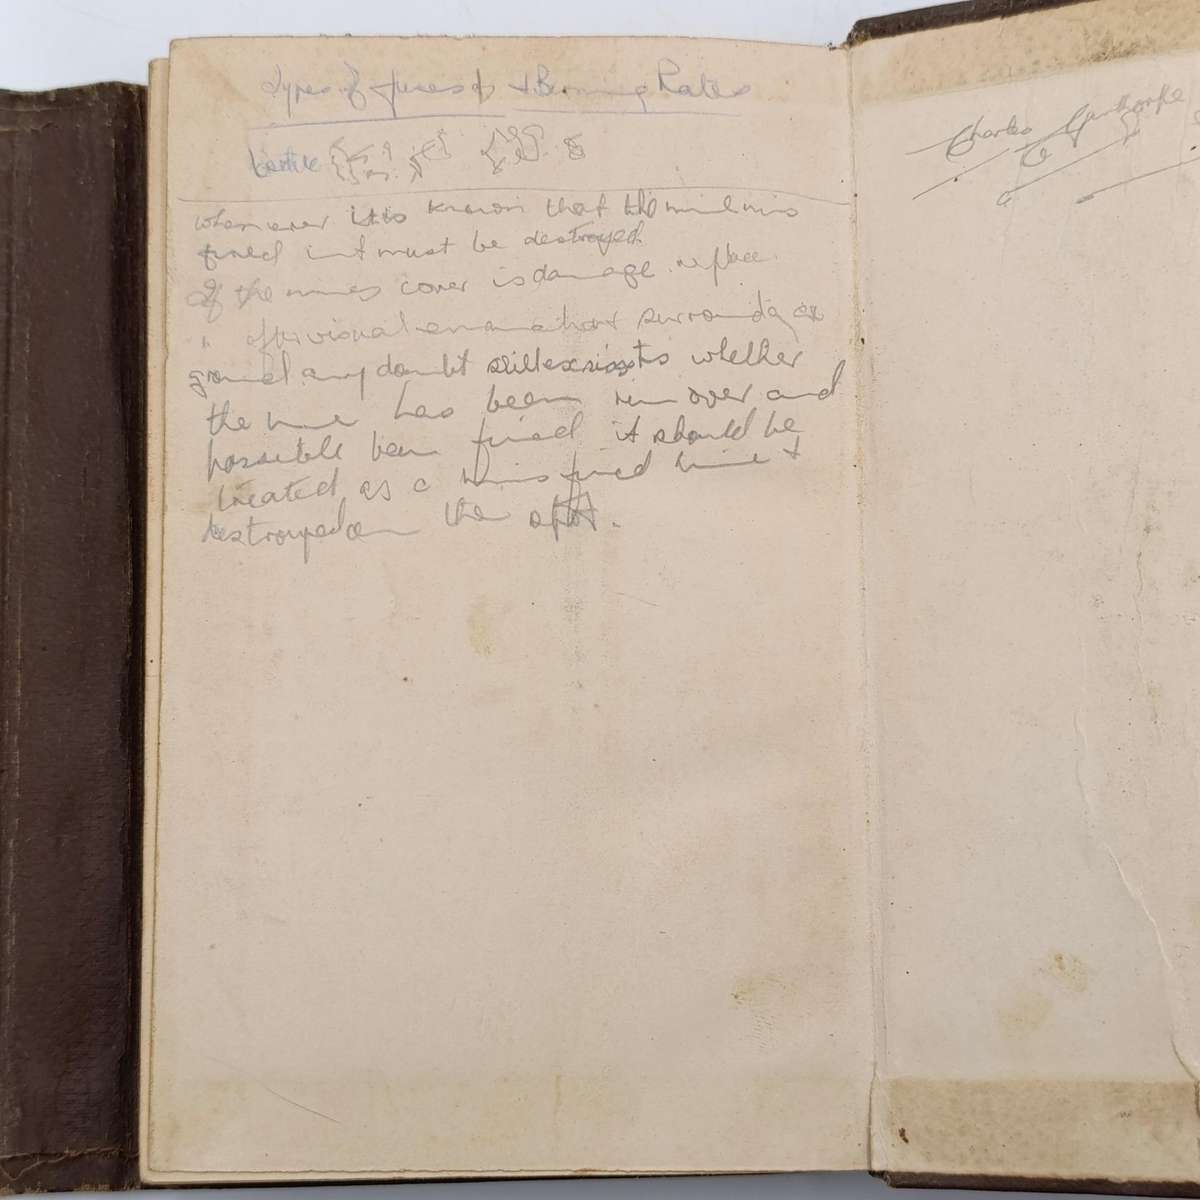 Types of fuses & Burning Rates
whenever it is known that the mine mis
fired it must be destroyed.
If the mines cover is damage replace.
" after visual examination surrounding
ground any doubt still exsists whether
the mine has been run over and
possible been fired it should be
treated as a miss fired mine +
destroyed on the spot.
Charles Ganthorpe